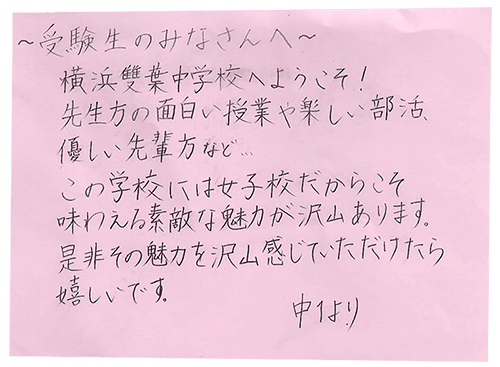 ～受験生のみなさんへ～
横浜雙葉中学校へようこそ！
先生方の面白い授業や楽しい部活、
優しい先輩方など…
この学校には女子校だからこそ
味わえる素敵な魅力が沢山あります。
是非その魅力を沢山感じていただけたら
嬉しいです。
中1より